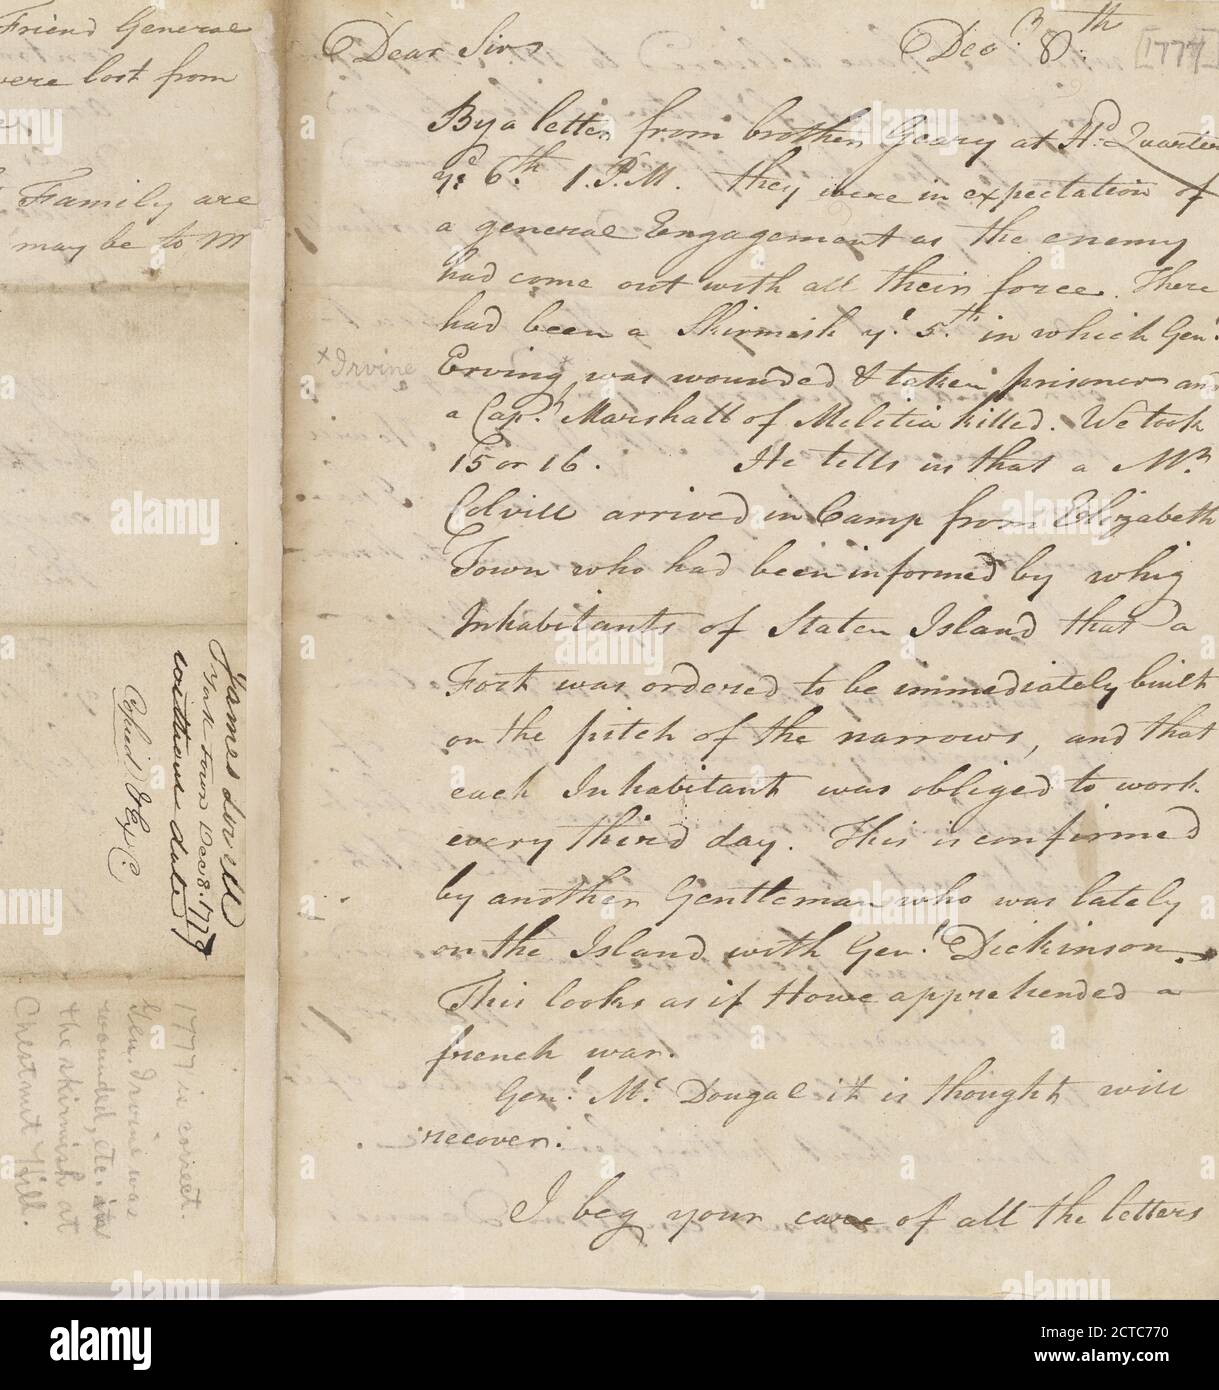 Friend General
were lost from
Family are
may be to M
Dear Sir
Decr. 8th. [1777]
By a letter from brother Geary at Hd. Quarters
ye. 6th. 1. P.M. they were in expectation of
a general Engagement as the enemy
had come out with all their force. There
had been a Skirmish ye. 5th. in which Genl.
× Irvine
Erving × was wounded & taken prisoner and
a Capt. Marshall of Melitia killed. We took
15 or 16. He tells us that a Mr.
Colvill arrived in Camp from Elizabeth
Town who had been informed by whig
Inhabitants of Staten Island that a
Fort was ordered to be immediately built
on the pitch of the narrows, and that
each Inhabitant was obliged to work
every third day. This is confirmed
by another Gentleman who was lately
on the Island with Genl. Dickinson.
This looks as if Howe apprehended a
french war.
Genl. Mc. Dougal it is thought will
recover.
I beg your care of all the letters
James Lovell
York town Decr 8. 1777
without date
1777 is correct.
Gen. Irvine was
wounded, etc. in
the skirmish at
Chestnut Hill.
alamy
Image ID: 2CTC770
www.alamy.com